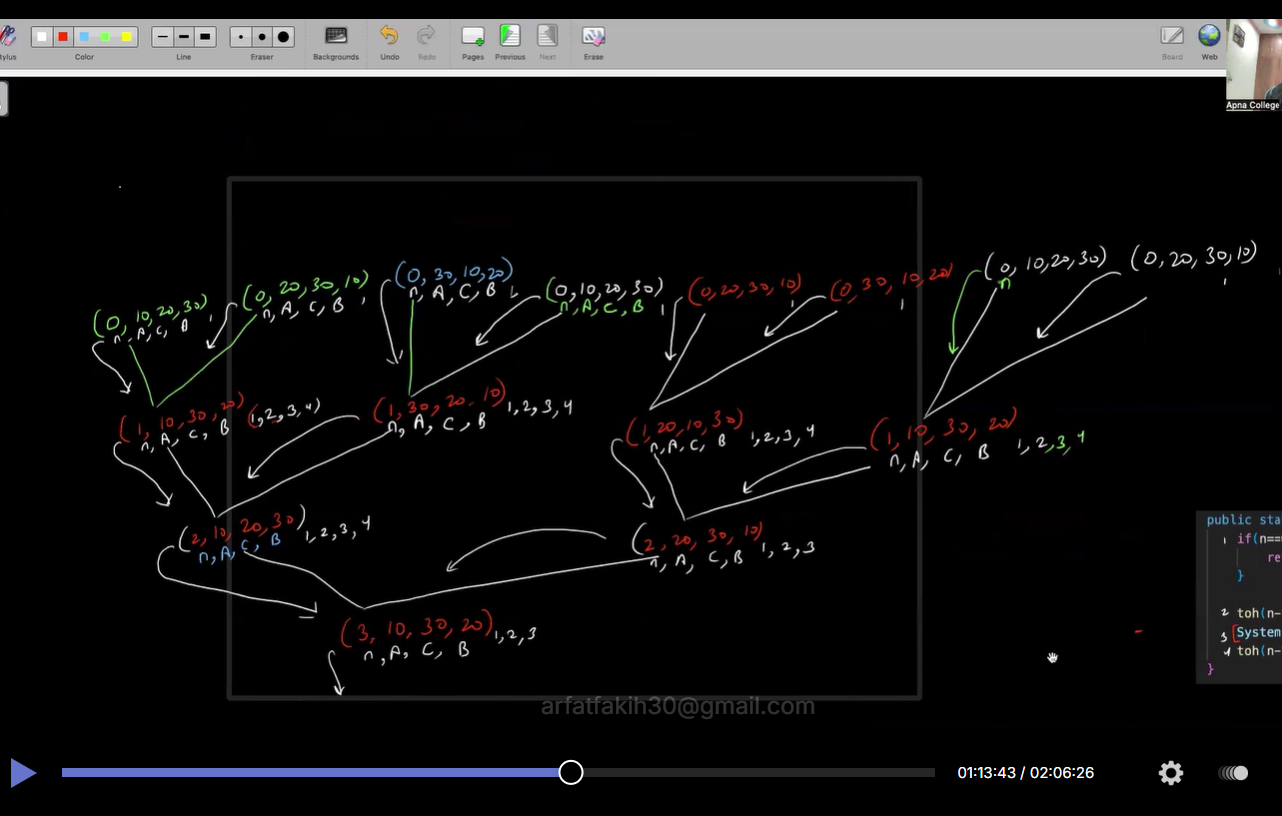 tylus
Color
Line
Eraser
Backgrounds
Undo
Redo
Pages
Previous
Next
Erase
Board
Web
Apna College
(0, 10,20,30)
n, A, C, B 1
(0, 20, 30, 10)
n, A, C, B 1
(0, 30, 10, 20)
n, A, C, B 1
(0, 10, 20, 30)
n, A, C, B 1
(0, 20, 30, 10)
1
(0, 30, 10, 20)
1
(0, 10, 20, 30)
n
(0, 20, 30, 10)
1
(1, 10, 30, 20) (1, 2, 3, 4)
n, A, C, B
(1, 30, 20, 10) 1, 2, 3, 4
n, A, C, B
(1, 20, 10, 30)
n, A, C, B 1, 2, 3, 4
(1, 10, 30, 20)
n, A, C, B 1, 2, 3, 4
(2, 10, 20, 30) 1, 2, 3, 4
n, A, C, B
(2, 20, 30, 10)
n, A, C, B 1, 2, 3
(3, 10, 30, 20) 1, 2, 3
n, A, C, B
public sta
1 if(n==
re
}
2 toh(n-
3 [System
4 toh(n-
}
arfatfakih30@gmail.com
01:13:43 / 02:06:26